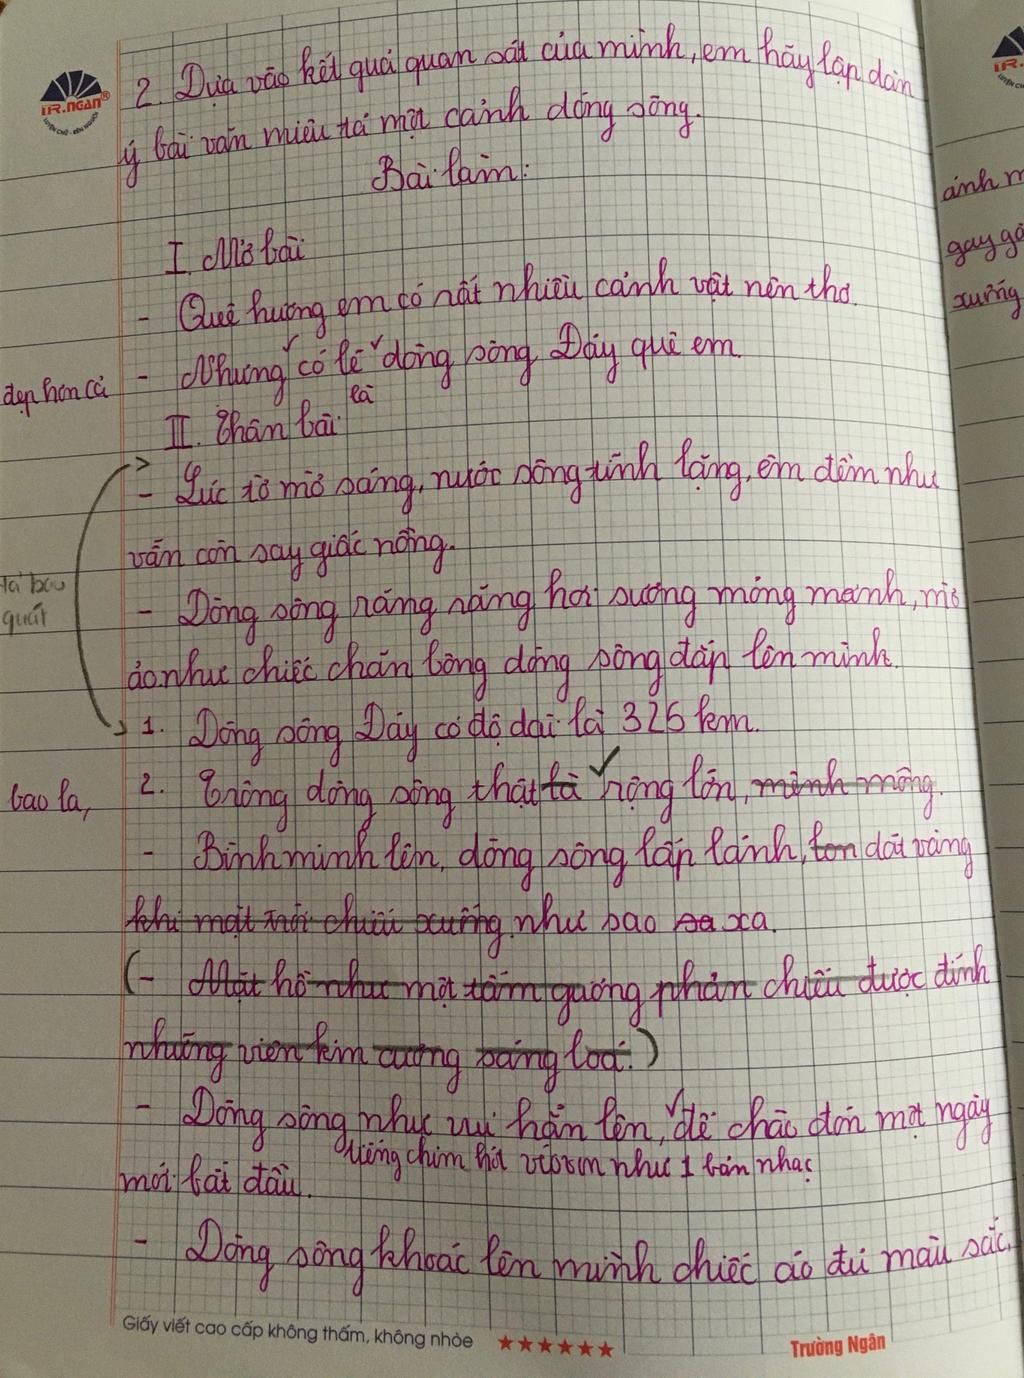 TR.NGAN®
LUYỆN CHỮ - RÈN NGƯỜI
2. Dựa vào kết quả quan sát của mình, em hãy lập dàn
ý bài văn miêu tả một cảnh dòng sông.
Bài làm:
I. Mở bài
- Quê hương em có nất nhiều cảnh vật nên thơ.
- Nhưng có lẽ dòng sông Đáy quê em
đẹp hơn cả
là
II. Thân bài
- Lúc tờ mờ sáng, nước sông tĩnh lặng, êm đềm như
vẫn còn say giấc nồng.
tả bao
quát
- Dòng sông năng nặng hơi sương mỏng manh, mờ
ảo như chiếc chăn bông dòng sông đắp lên mình.
1. Dòng sông Đáy có độ dài là 325 km.
2. Trông dòng sông thật là rộng lớn, mênh mông.
bao la,
- Bình minh lên, dòng sông lấp lánh, lon dát vàng
khi mặt trời chiếu xuống như sao sa xa.
(- Mặt hồ như một tấm gương phản chiếu được đính
những viên kim cương sáng loá.)
- Dòng sông như vui hẳn lên, để chào đón một ngày
tiếng chim hót véo von như 1 bản nhạc
mới bắt đầu.
- Dòng sông khoác lên mình chiếc áo đủ màu sắc,
Giấy viết cao cấp không thấm, không nhòe ★★★★★★ Trường Ngân
ánh m
gay gắ
xuống